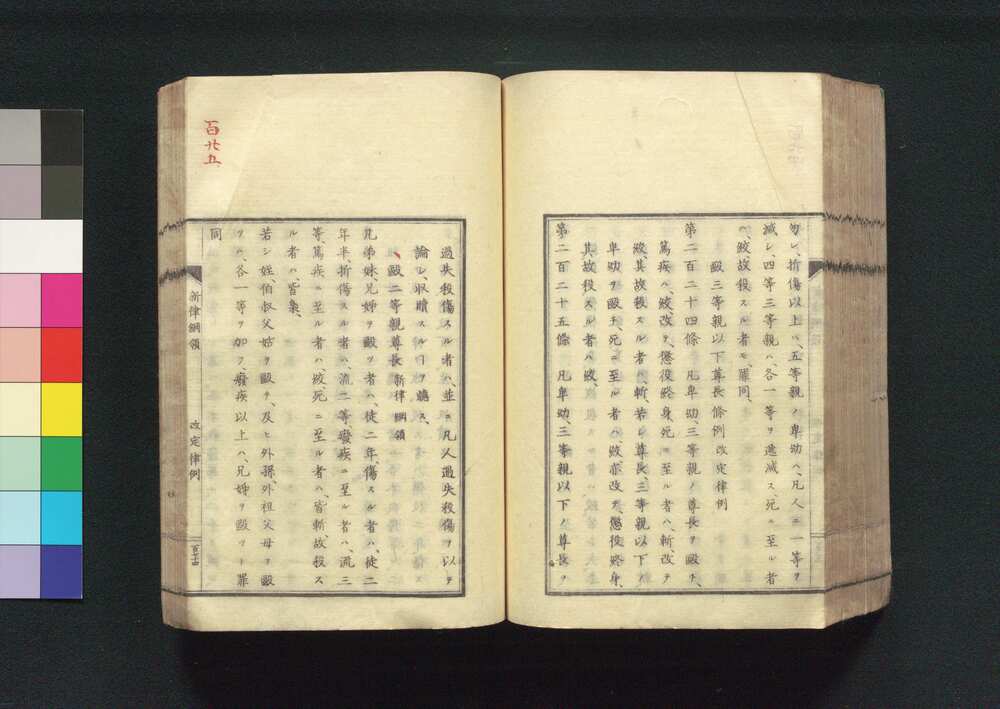 勿シ、折傷以上ハ、五等親ノ卑幼ハ、凡人ニ一等ヲ
減シ、四等三等親ハ、各一等ヲ逓減ス、死ニ至ル者
ハ、絞故殺スル者モ、罪同、
殴三等親以下尊長條例改定律例
第二百二十四條 凡卑幼、三等親ノ尊長ヲ毆チ、
篤疾ハ、絞、改テ、懲役終身、死ニ至ル者ハ、斬、改テ
絞、其故殺スル者ハ、斬、若シ尊長、三等親以下ノ
卑幼ヲ毆チ、死ニ至ル者ハ、絞、亦改テ、懲役終身、
其故殺スル者ハ、絞、
第二百二十五條 凡卑幼、三等親以下ノ尊長ヲ
過失殺傷スル者ハ、並ニ凡人過失殺傷ヲ以テ
論シ、収贖スル
毆二等親尊長 新律綱領
凡弟妹、兄姉ヲ毆ツ者ハ、徒二年、傷スル者ハ、徒二
年半、折傷スル者ハ、流二等、癈疾ニ至ル者ハ、流三
等、篤疾ニ至ル者ハ、絞、死ニ至ル者ハ、皆斬、故殺ス
ル者ハ、皆梟、
若シ姪、伯叔父姑ヲ毆チ、及ヒ外孫、外祖父母ヲ毆
ツハ、各一等ヲ加フ、癈疾以上ハ、兄姉ヲ毆ツト罪
同
新律綱領 改定律例
百廿五